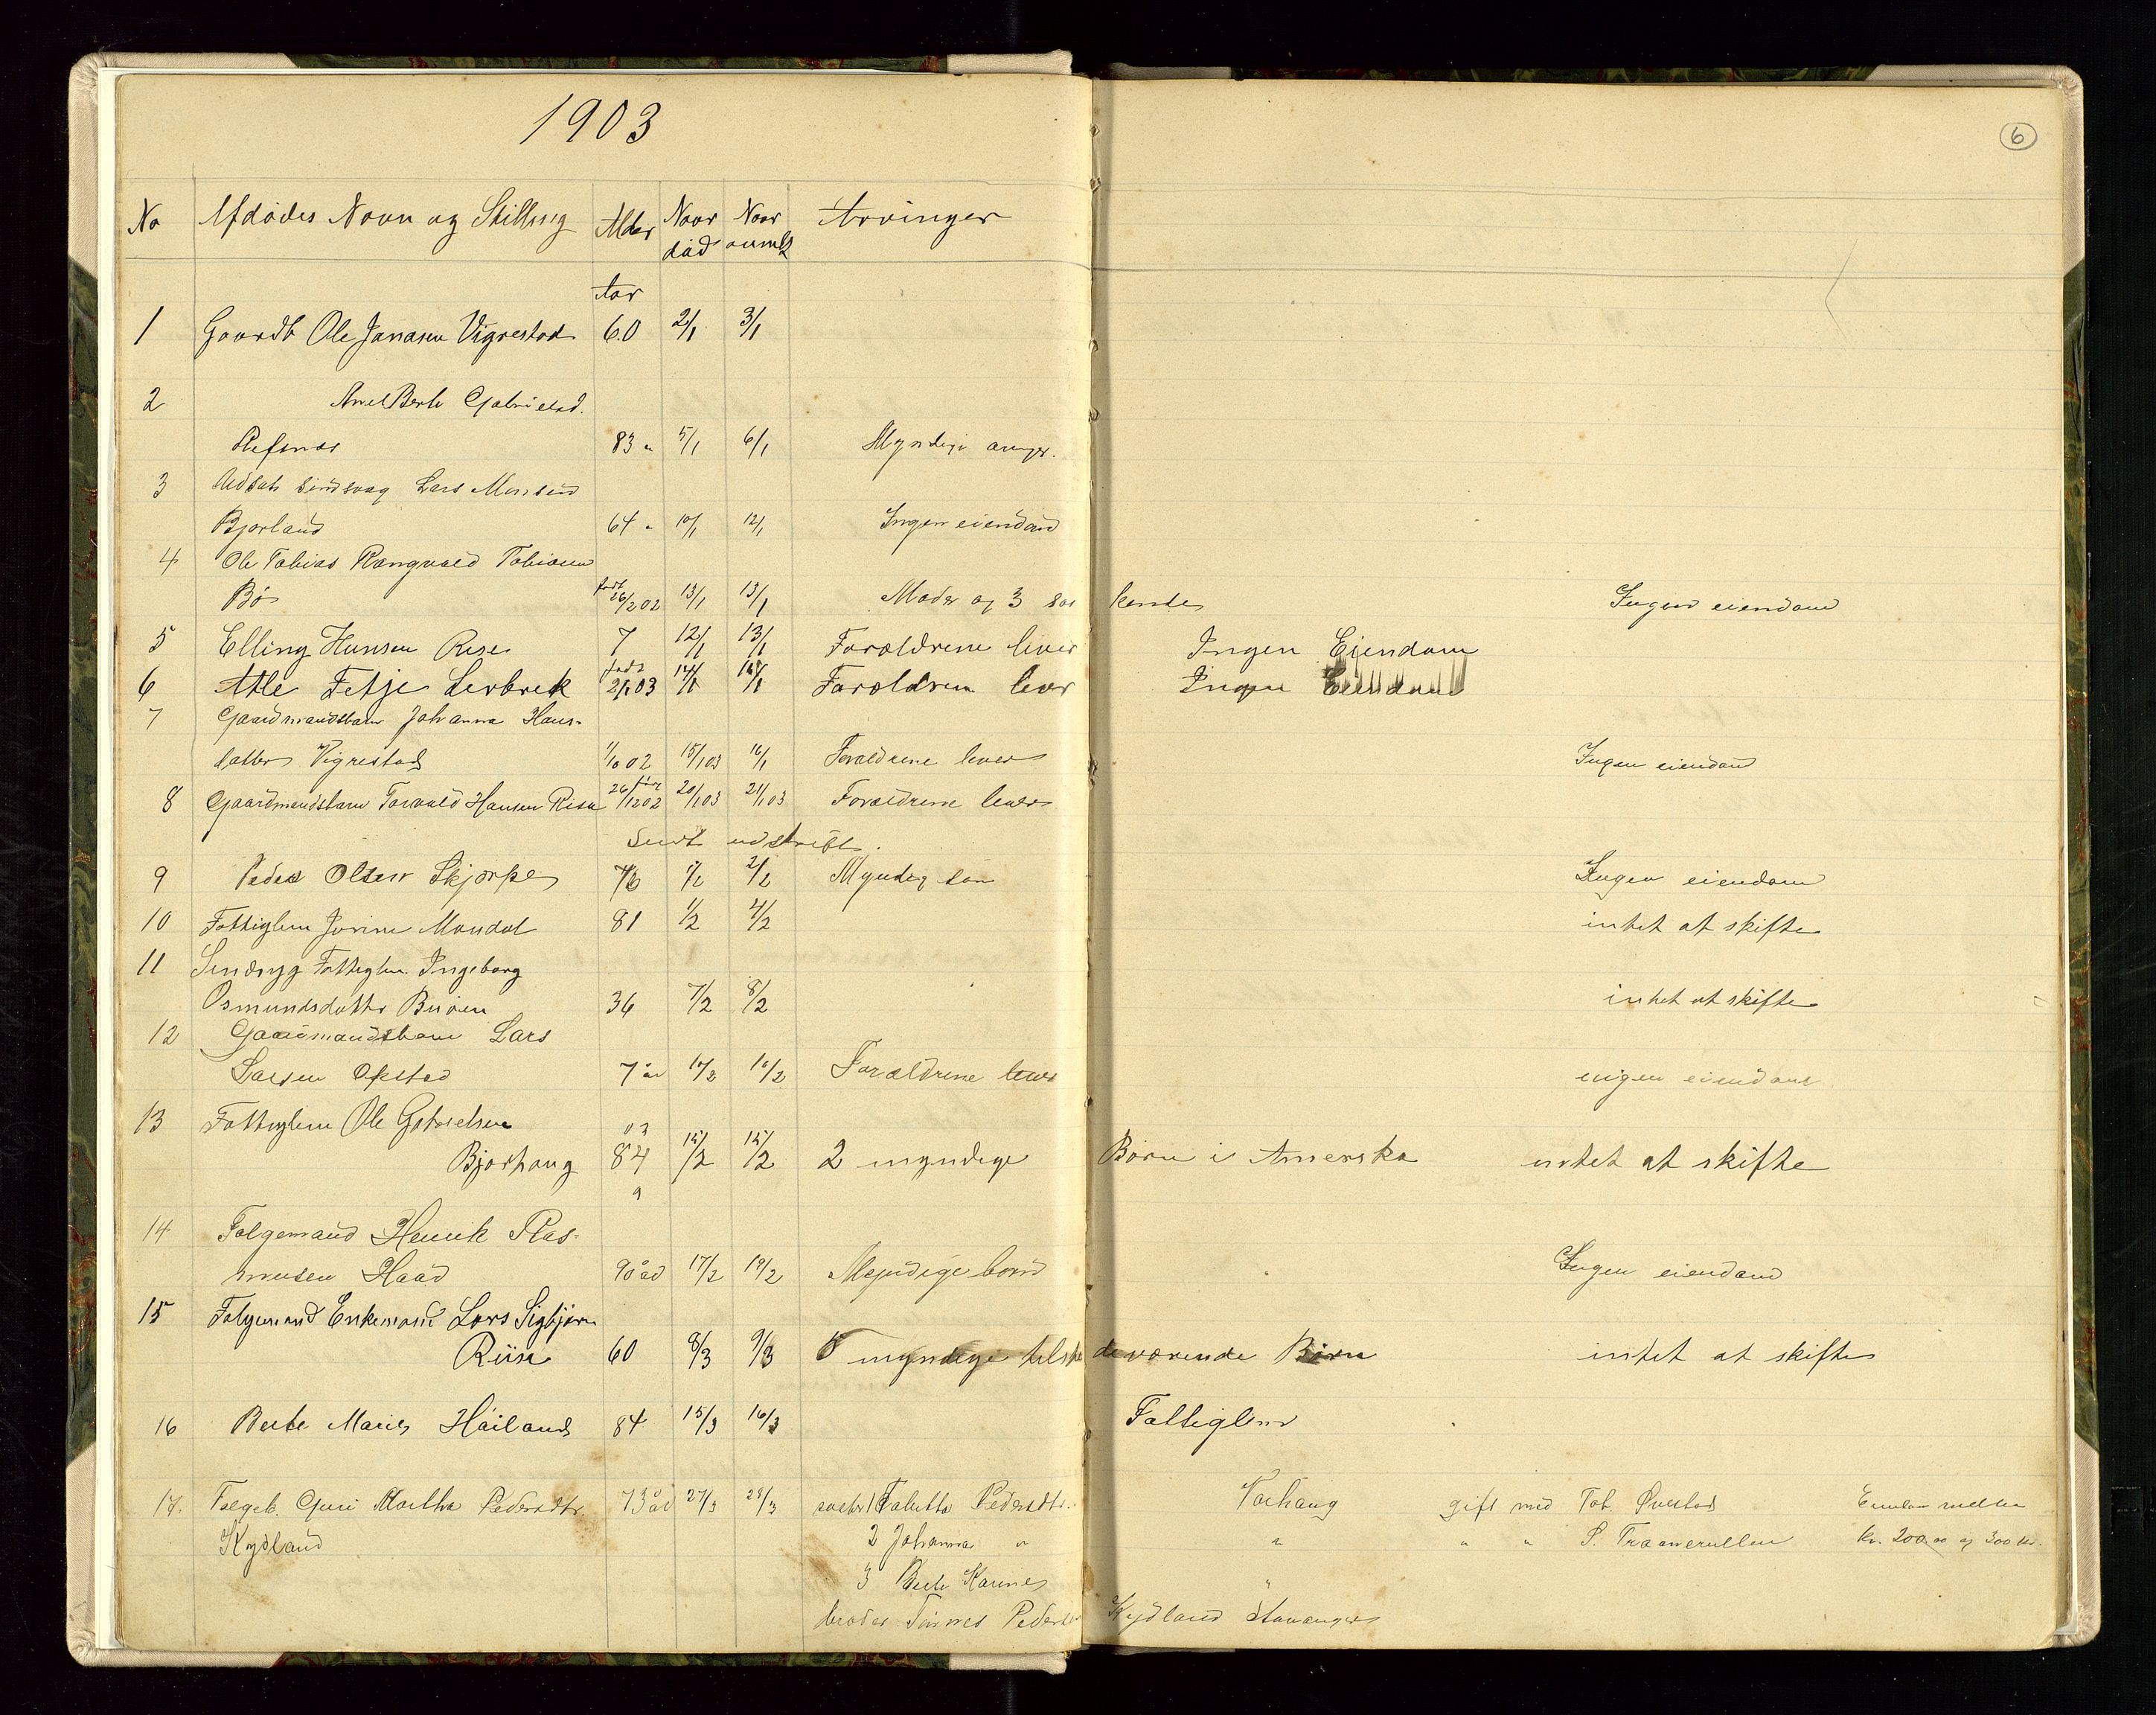 1903
6
No Afdødes Navn og Stilling Alder Naar død Naar anmeldt Arvinger
Aar
1 Gaardb Ole Jonasen Vigrestad 60 2/1 3/1
2 Berte Gabrielsd.
Refsnes 83 " 5/1 6/1 Myndige
3 sindsvag Lars Monsen
Bjorland 64 " 10/1 12/1 Ingen eiendom
4 Ole Tobias Rangvald Tobiasen
Bø født 26/2 02 13/1 13/1 Moder og 3 søs kende Ingen eiendom
5 Elling Hansen Rise 7 12/1 13/1 Forældrene lever Ingen Ejendom
6 Atle Tetje Lerbrek født 2/1 03 14/1 Forældrene lever Ingen Eiendom
7 Gaardmandsbarn Johanna Hans-
datter Vigrestad 02 15/1 03 16/1 Forældrene lever Ingen eiendom
8 Gaardmandsbarn Torvald Hansen Risa 26/12 02 20/1 03 21/1 03 Forældrene lever
Sendt udskrift.
9 Peder Olsen Skjorpe 76 1/2 2/2 Myndig søn Ingen eiendom
10 Fattiglem Jorine Mondal 81 1/2 4/2 intet at skifte
11 Sindsyg Fattiglem Ingeborg
Osmundsdatter 36 7/2 8/2 intet at skifte
12 Gaardmandsbarn Lars
Larsen 7 år 10/2 10/2 Forældrene lever ingen eiendom
13 Fattiglem Ole Gabrielsen
Bjorhaug 84 15/2 15/2 2 myndige Børn i Amerika intet at skifte
14 Folgemand Henrik Ras-
musen Haad 90 år 17/2 19/2 Myndige børn Ingen eiendom
15 Folgemand Enkemand Lars Sigbjørn
Riisa 60 8/3 9/3 8 myndige tilstedeværende Børn intet at skifte
16 Berte Marie Håiland 84 15/3 16/3 Fattiglem
17. Folgek. Guri Martha Pedersdtr 73 år 27/3 28/3 søster 1 Tabitha Pedersdtr. Varhaug gift med Tob. mellem
Kydland 2 Johanna " " " " S. kr. 200.00 og 300 kr.
3 Berte Karine "
broder Tønnes Pedersen Kydland Stavanger